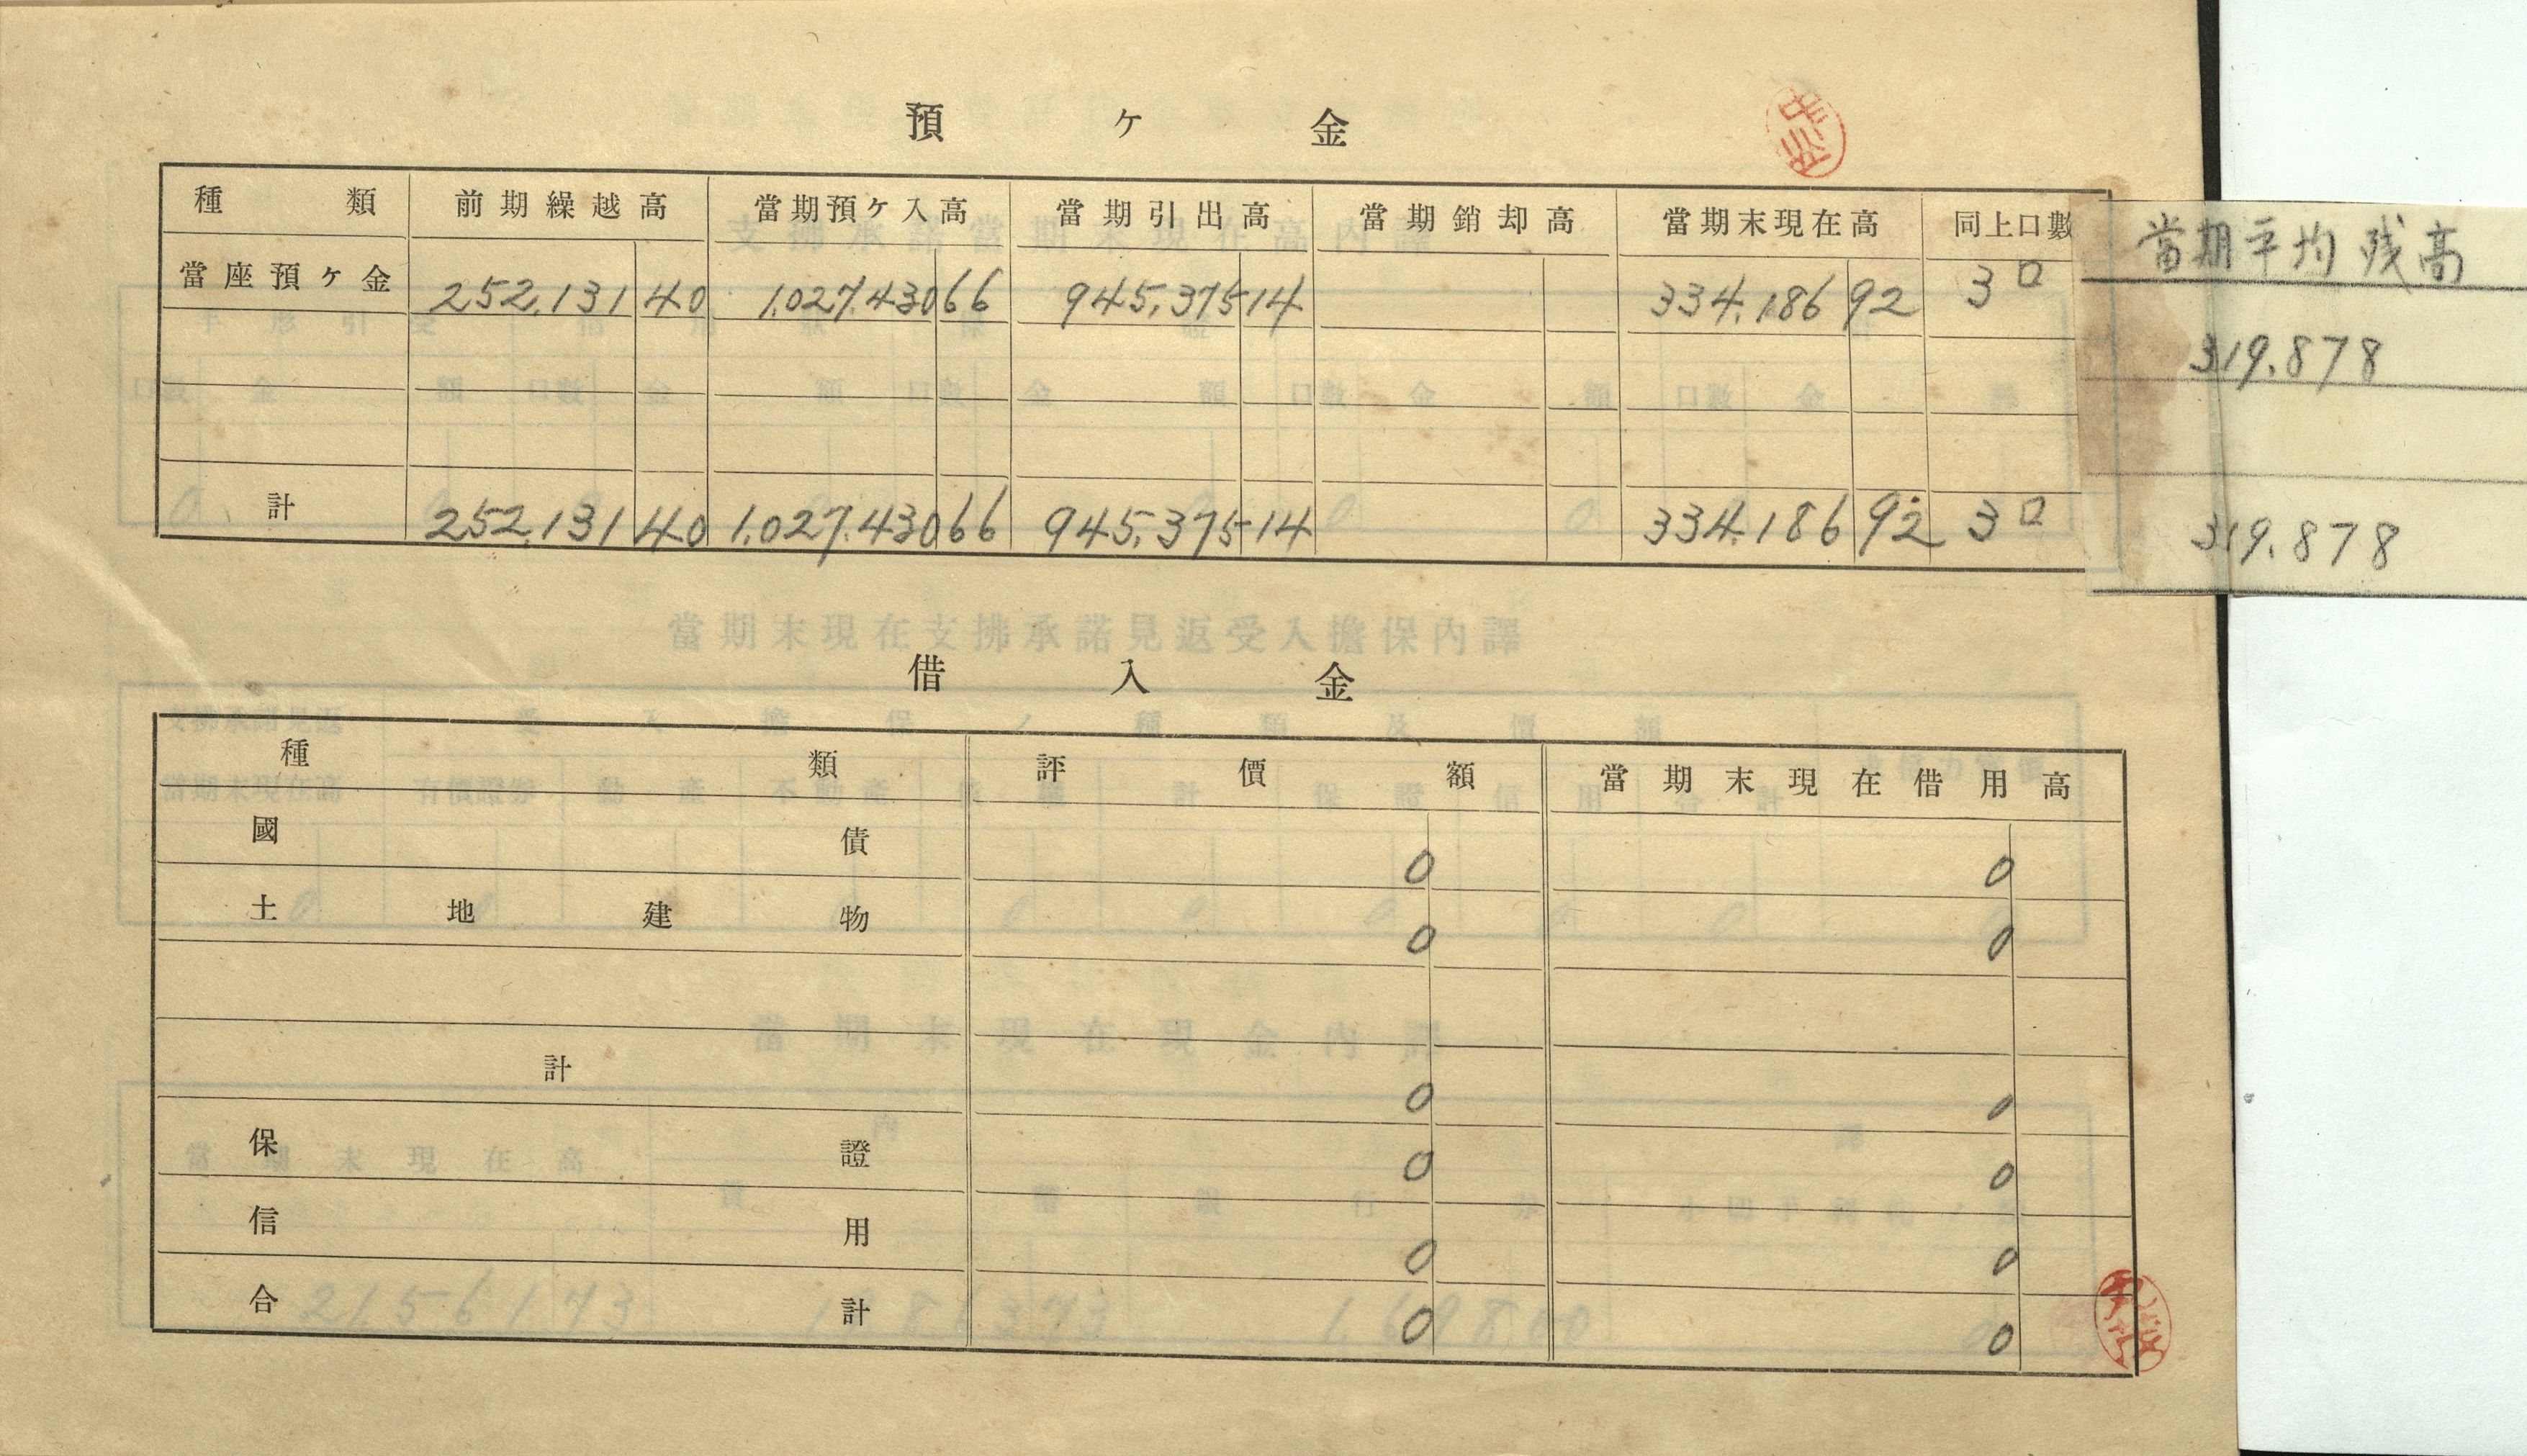 預ケ金
種類 前期繰越高 當期預ケ入高 當期引出高 當期銷却高 當期末現在高 同上口數 當期平均残高
當座預ケ金 252,131 40 1,027,430 66 945,375 14 334,186 92 3口 319,878
計 252,131 40 1,027,430 66 945,375 14 334,186 92 3口 319,878
借入金
種類 評價額 當期末現在借用高
國債 0 0
土地建物 0 0
計 0 0
保證 0 0
信用 0 0
合計 0 0